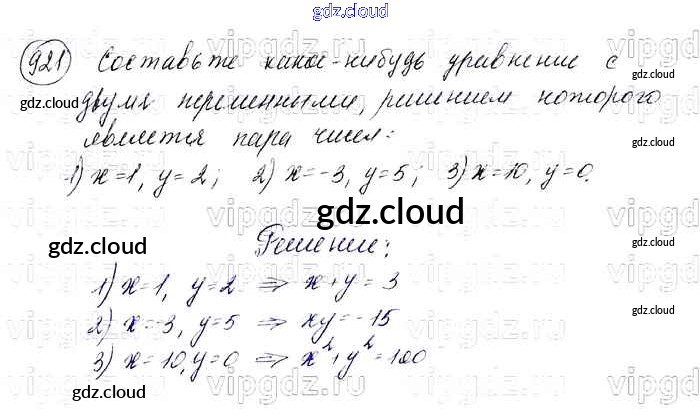 gdz.cloud
921 Составьте какое-нибудь уравнение с
gdz.cloud
двумя переменными, решением которого
gdz.cloud
является пара чисел:
gdz.cloud
1) x=1, y=2; 2) x=-3, y=5; 3) x=10, y=0.
gdz.cloud
gdz.cloud
Решение:
gdz.cloud
1) x=1, y=2 => x+y=3
gdz.cloud
2) x=-3, y=5 => xy=-15
3) x=10, y=0 => x²+y²=100
gdz.cloud
gdz.cloud